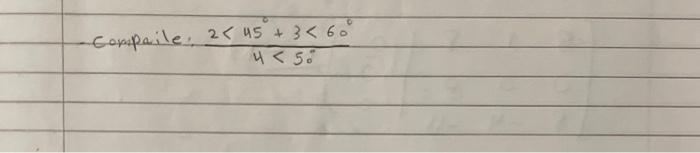 - Compaile: 2 < 45° + 3 < 60°
4 < 50°